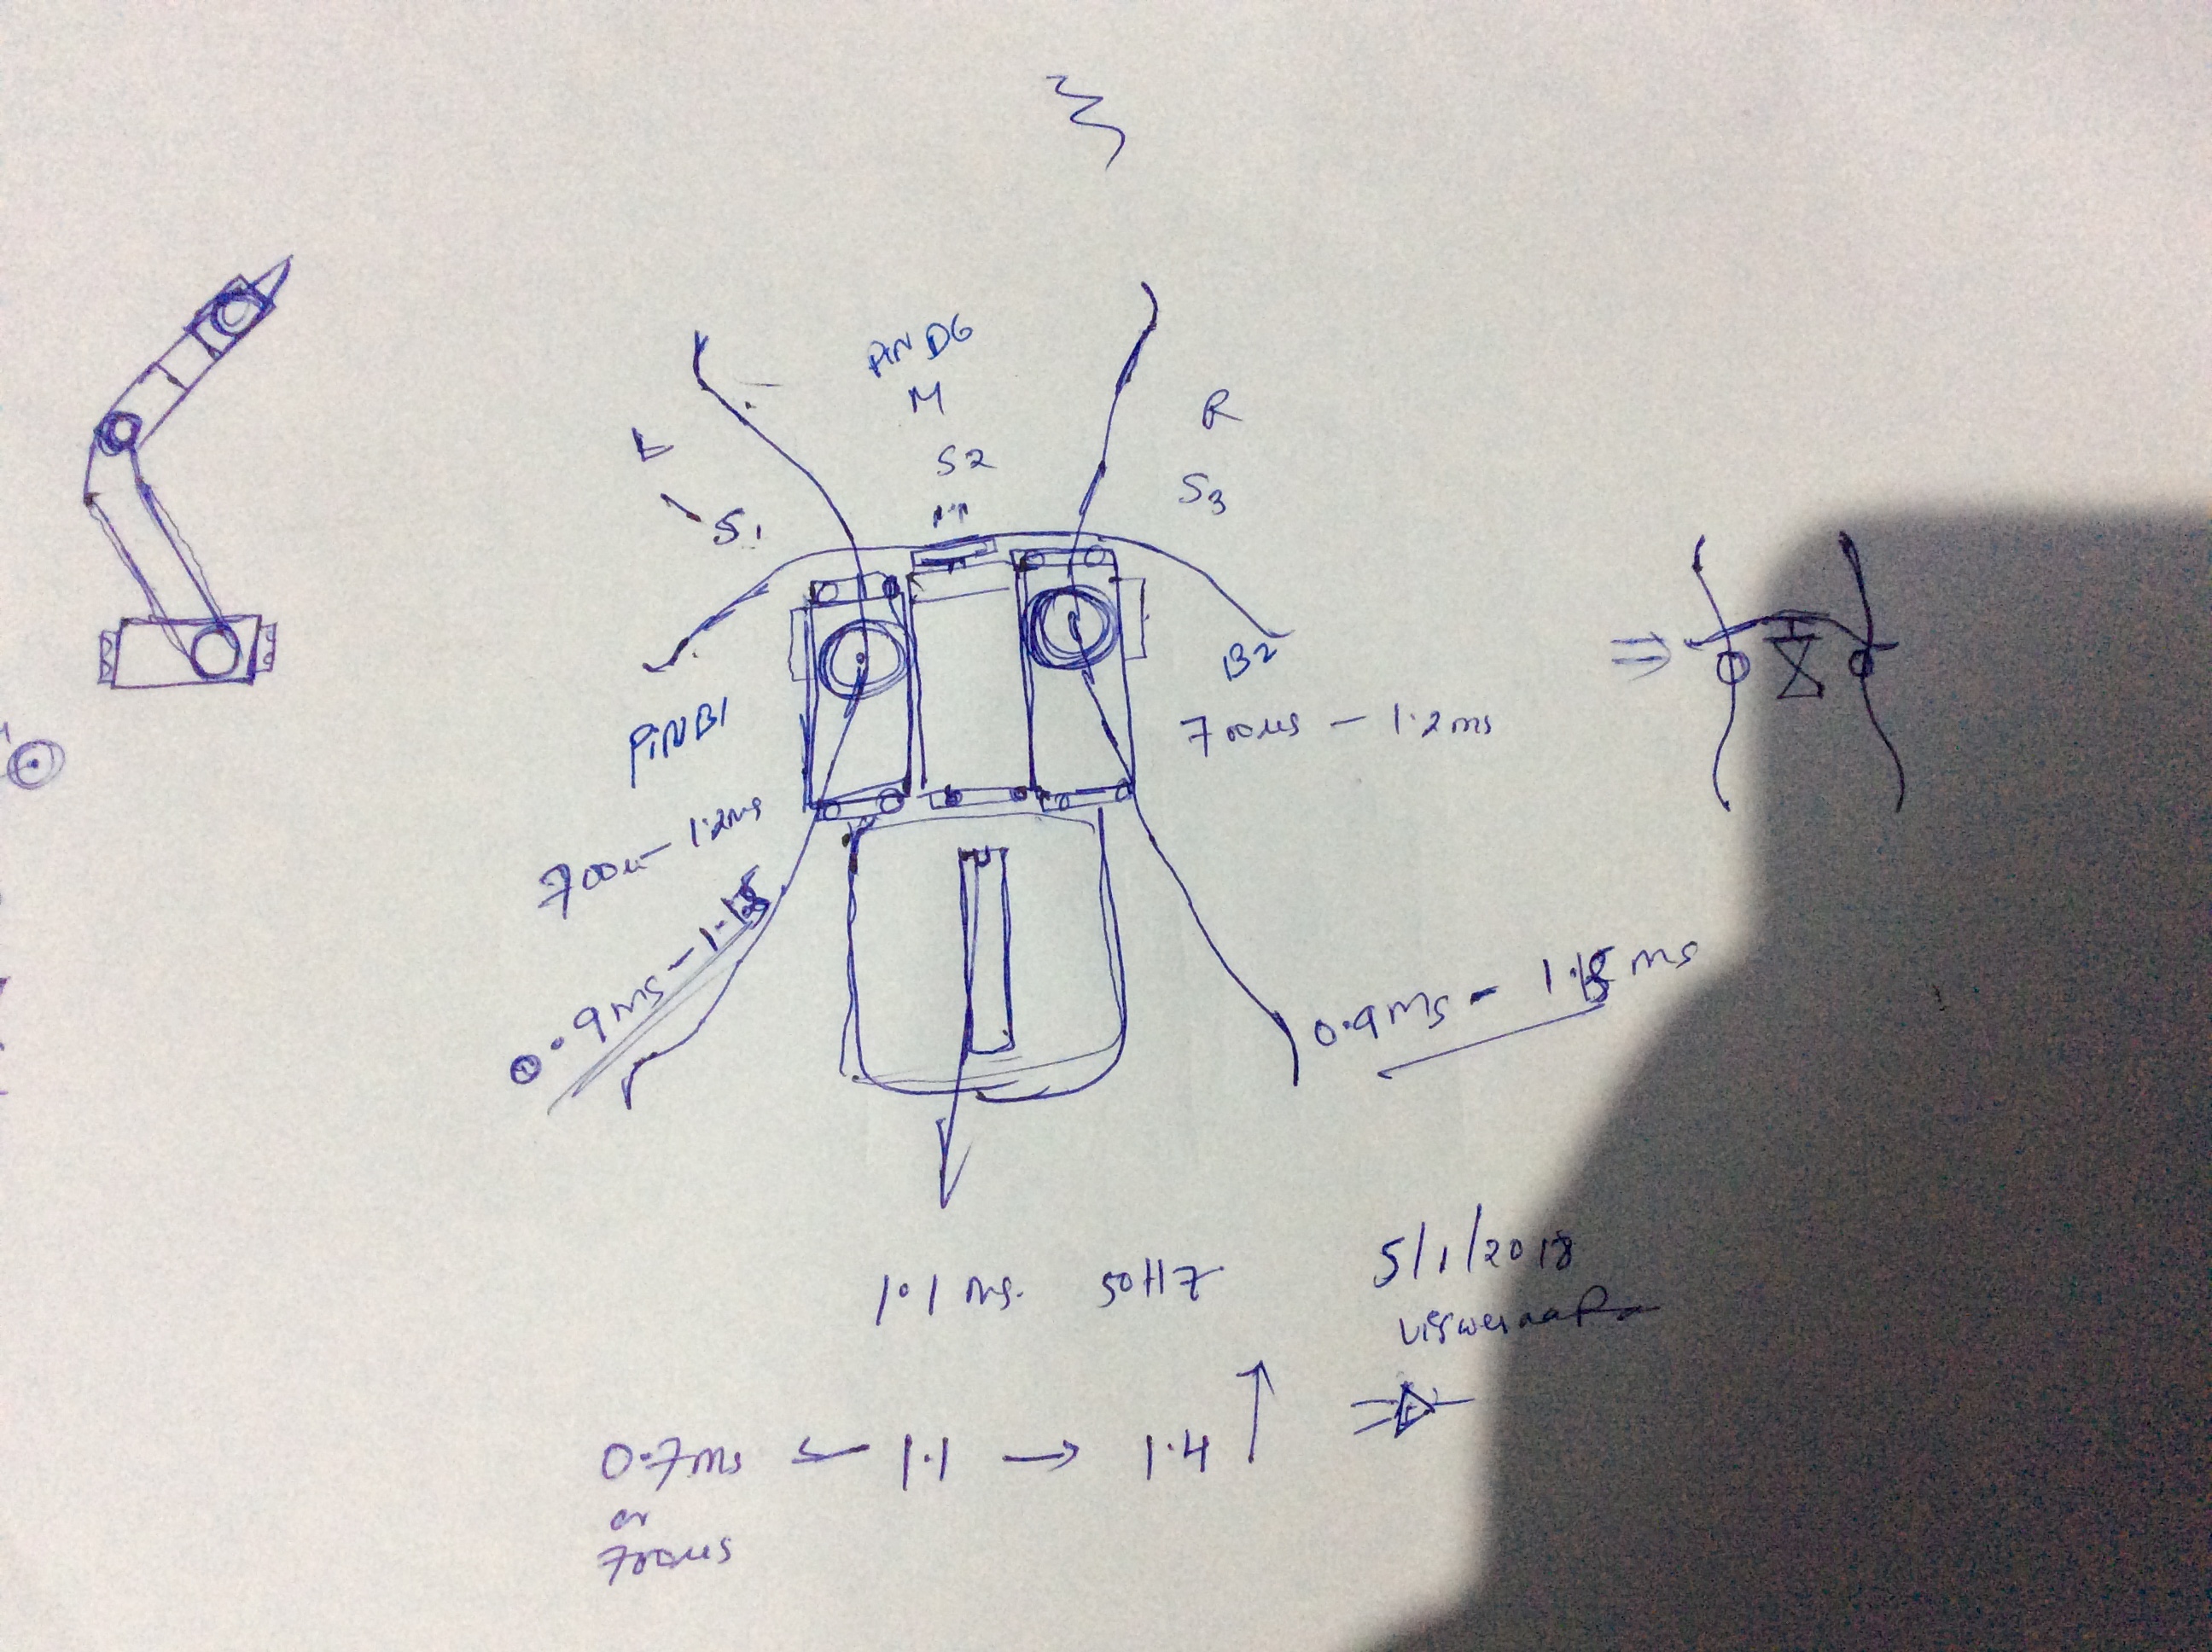 PIN D6
M
S2
L
S1
R
S3
PIN B1
B2
700us - 1.2ms
700u - 1.2ms
0.9ms -
0.9ms -
1.1 ms. 50HZ
5/1/2018
0.7ms ← 1.1 → 1.4 ↑
or
700us